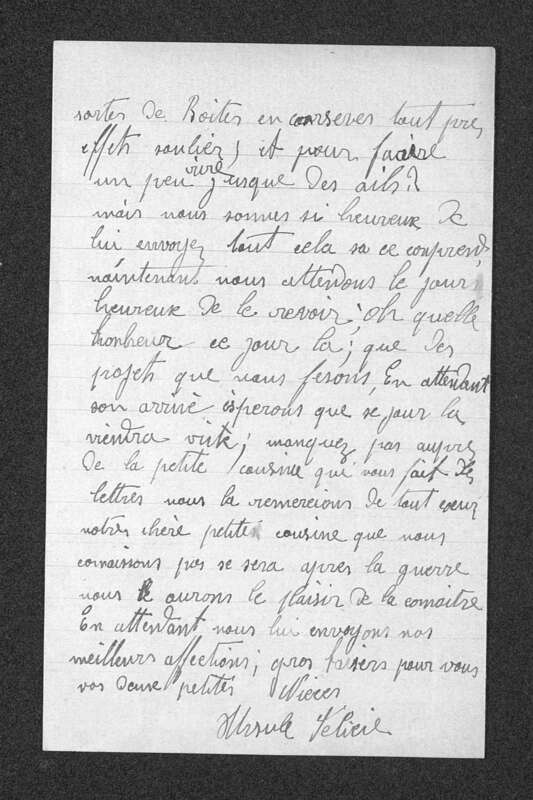 sortes de Boites en conserves tout pres
effets soulier; et pour faire
rire
un peu jusque des ails?
mais nous sonnes si heureux de
lui envoyez tout cela sa ce comprend,
maintenant nous attendons le jour
heureux de le revoir; oh quelle
bonheur ce jour la; que des
projets que nous fesons, En attendant
son arrivé èsperons que se jour la
viendra vite; manquez pas aupres
de la petite cousine qui vous fait des
lettres nous la remercions de tout coeur
notres chère petite cousine que nous
connaissons pas se sera apres la guerre
nous aurons le plaisir de la connaitre
En attendant nous lui envoyons nos
meilleurs affections; gros baisers pour vous
vos deux petites Nieces
Ursule Félicie